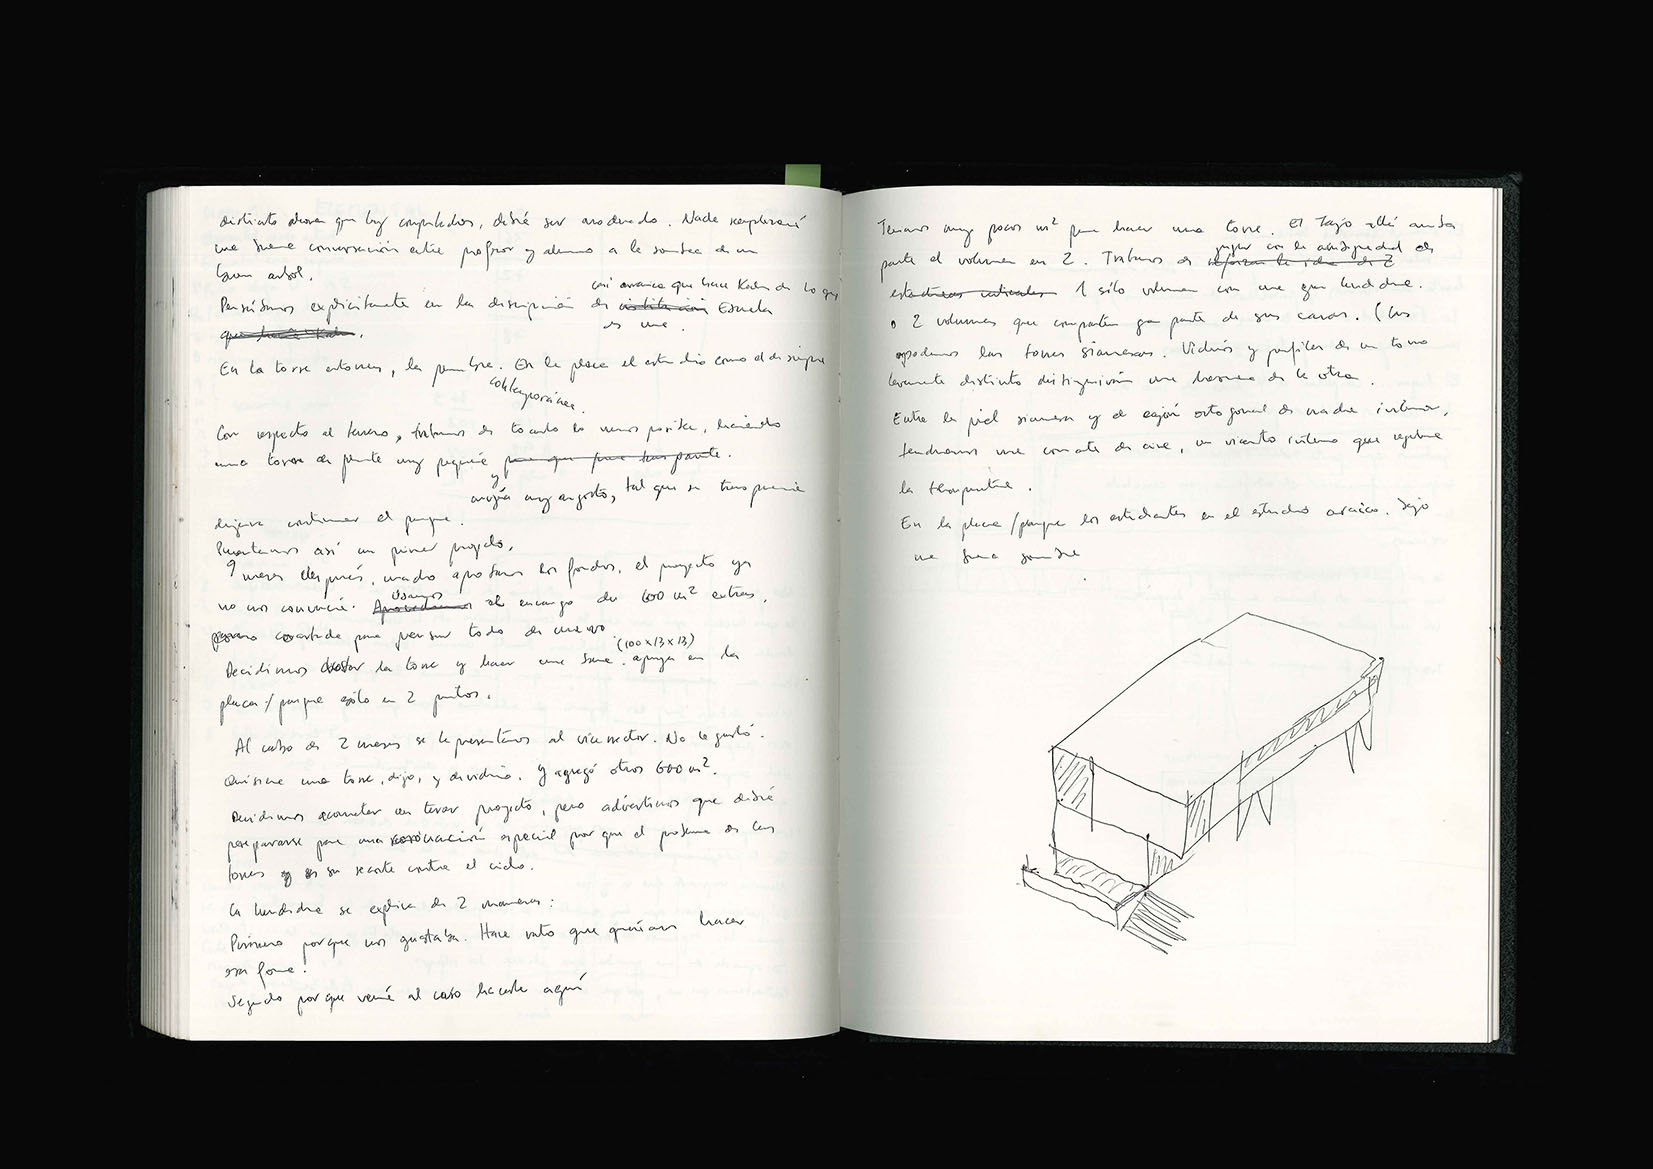 distinto ahora que hay computadores, debié ser moderado. Nade reemplazará
una buena conversación entre profesor y alumno a la sombra de un
buen arbol.
con arranca que hace Kahn de lo que
Pensábamos explícitamente en la descripción de institución Escuela
es una.
que hacía Kahn.
En la torre entonces, la penumbra. En la placa el estudio como el de siempre
contemporánea.
Con respecto al terreno, tratamos de tocarlo lo menos posible, haciendo
una torre de planta muy pequeña para que fuera transparente.
y
muy angosto, tal que se transparente
dejara continuar el parque.
Presentamos así un primer proyecto.
9 meses después, cuando aprobaron los fondos, el proyecto ya
Usamos
no nos convencía. Aprovechamos el encargo de 600 m² extras,
como coartada para pensar todo de nuevo.
(100 x 13 x 13)
Decidimos botar la torre y hacer una barra. apoya en la
placa/parque sólo en 2 puntos.
Al cabo de 2 meses se la presentamos al vicerrector. No le gustó.
Quisiera una torre, dijo, y dividirla. Y agregó otros 600 m².
Decidimos acometer un tercer proyecto, pero advertimos que debía
prepararse para una vocación especial porque el problema de las
torres es su recorte contra el cielo.
La hendidura se explica de 2 maneras:
Primero porque nos gustaba. Hace rato que queríamos hacer
esa forma.
Segundo porque venía al caso hacerla aquí
Tenemos muy pocos m² para hacer una torre. El Tajo allá arriba
jugar con la ambigüedad de
parte el volumen en 2. Tratamos de reforzar la idea de 2
estructuras verticales 1 sólo volumen con una gran hendidura.
o 2 volumenes que comparten gran parte de sus caras. (Las
apodamos las torres siamesas. Vidrios y perfiles de un tono
levemente distinto distinguirán una hermana de la otra.
Entre la piel siamesa y el cajón ortogonal de madera interior,
tendremos una corriente de aire, un viento interno que regulará
la temperatura.
En la placa/parque los estudiantes en el estudio arcaico. Bajo
una buena sombra